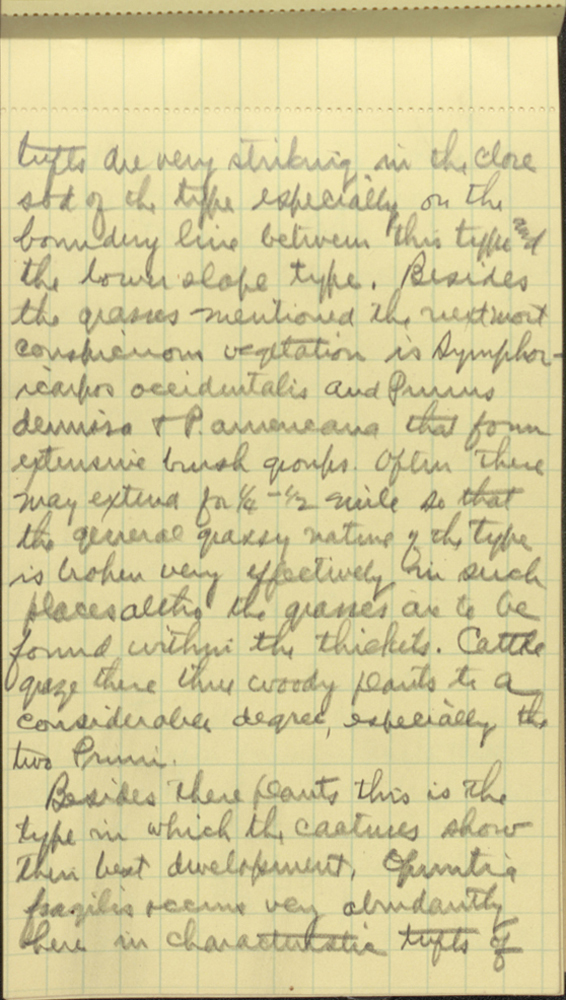 tufts are very striking in the close
sod of the type especially on the
boundary line between this type and
the lower slope type. Besides
the grasses mentioned the next most
conspicuous vegetation is Symphor-
icarpos occidentalis and Prunus
demissa & P. americana that form
extensive brush groups. Often these
may extend for 1/4 - 1/2 mile so that
the general grassy nature of the type
is broken very effectively in such
places altho the grasses are to be
found within the thickets. Cattle
graze these three woody plants to a
considerable degree, especially the
two Pruni.
Besides these plants this is the
type in which the cactuses show
their best development. Opuntia
fragilis occurs very abundantly
here in characteristic tufts of